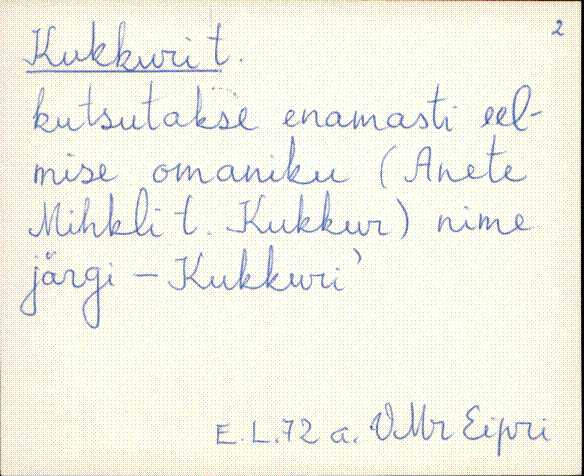 2
Kukkuri t.
kutsutakse enamasti eel-
mise omaniku (Anete
Mihkli t. Kukkur) nime
järgi – Kukkuri'
E.L.72 a. VMr Eipri